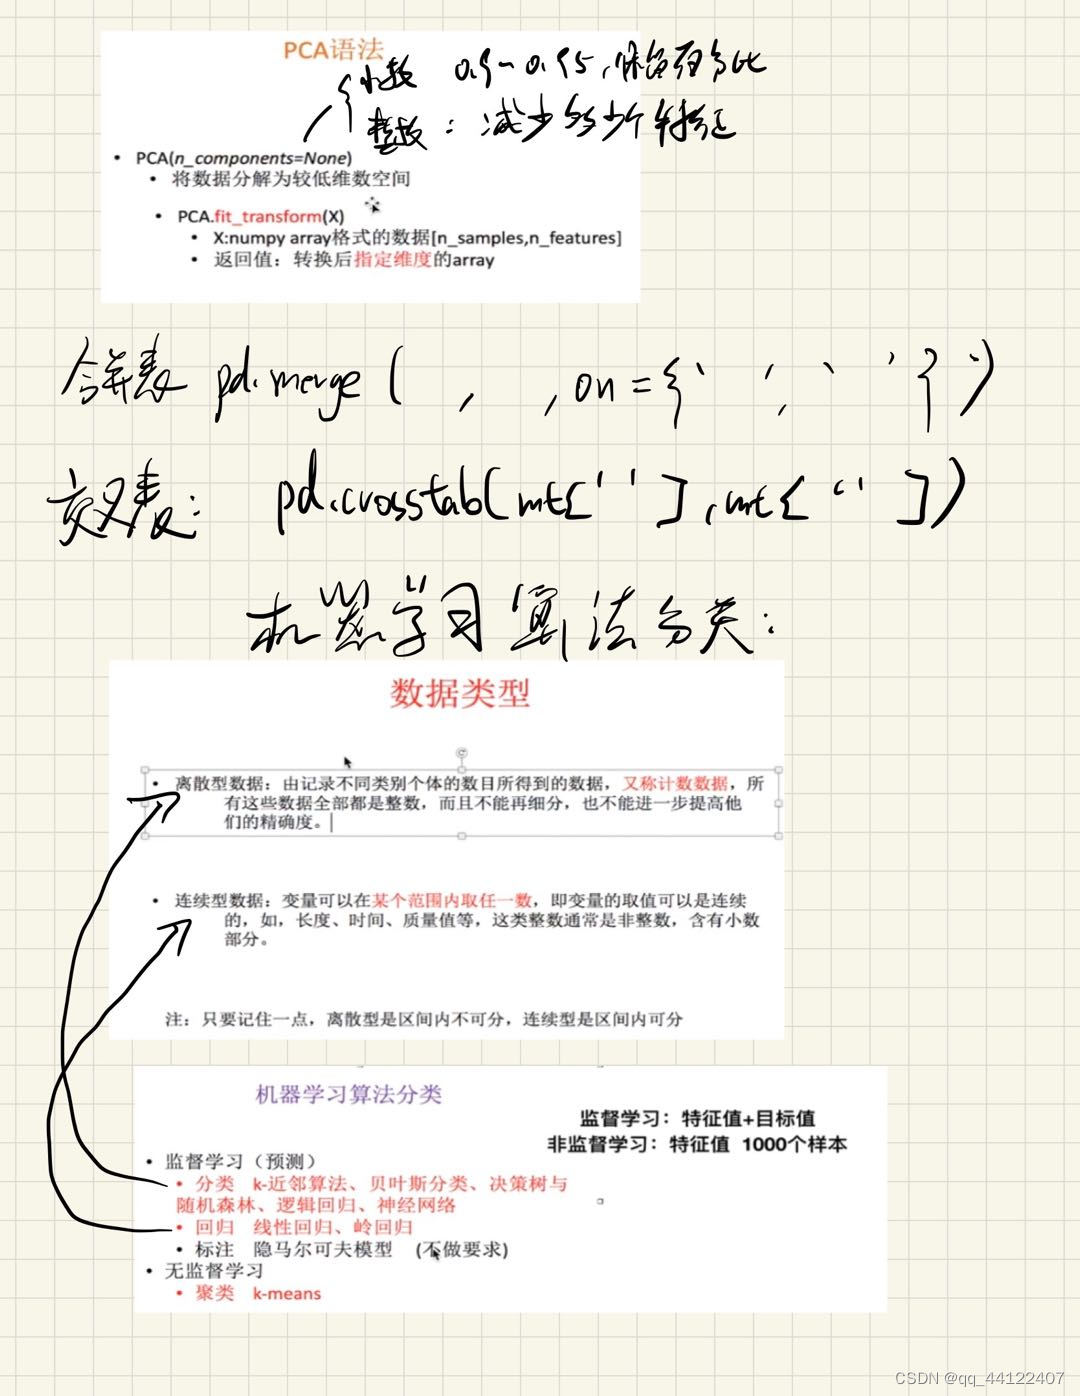 PCA语法
小数 0.9~0.95,保留百分比
整数:减少到多少个特征
• PCA(n_components=None)
• 将数据分解为较低维数空间
• PCA.fit_transform(X)
• X:numpy array格式的数据[n_samples,n_features]
• 返回值：转换后指定维度的array
合并表 pd.merge( , ,on=[' ',' '])
交叉表: pd.crosstab(mt[' '],mt[' '])
机器学习算法分类:
数据类型
• 离散型数据：由记录不同类别个体的数目所得到的数据，又称计数数据，所
有这些数据全部都是整数，而且不能再细分，也不能进一步提高他
们的精确度。
• 连续型数据：变量可以在某个范围内取任一数，即变量的取值可以是连续
的，如，长度、时间、质量值等，这类整数通常是非整数，含有小数
部分。
注：只要记住一点，离散型是区间内不可分，连续型是区间内可分
机器学习算法分类
监督学习：特征值+目标值
非监督学习：特征值 1000个样本
• 监督学习（预测）
• 分类 k-近邻算法、贝叶斯分类、决策树与
随机森林、逻辑回归、神经网络
• 回归 线性回归、岭回归
• 标注 隐马尔可夫模型 (不做要求)
• 无监督学习
• 聚类 k-means
CSDN @qq_44122407